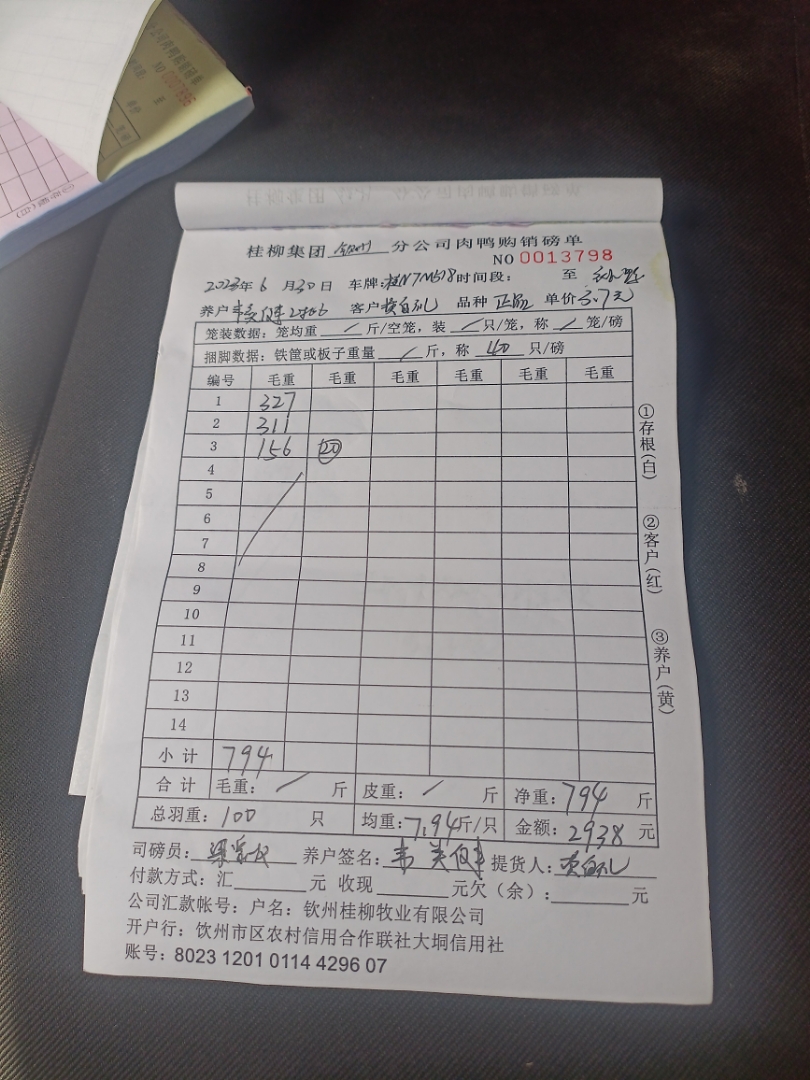 NO 0013798
桂柳集团 钦州 分公司肉鸭购销磅单
2023年6月30日 车牌:桂N7N518时间段: 至
养户 客户黄自礼 品种 单价3.7元
笼装数据:笼均重 / 斤/空笼,装 / 只/笼,称 / 笼/磅
捆脚数据:铁筐或板子重量 / 斤,称 40 只/磅
编号 毛重 毛重 毛重 毛重 毛重 毛重
1 327
2 311
3 156 20
4
5
6
7
8
9
10
11
12
13
14
小计 794
合计 毛重: / 斤 皮重: / 斤 净重:794 斤
总羽重:100 只 均重:7.94斤/只 金额:2938 元
司磅员: 养户签名:韦 提货人:黄自礼
付款方式:汇 元 收现 元欠(余): 元
公司汇款帐号:户名:钦州桂柳牧业有限公司
开户行:钦州市区农村信用合作联社大垌信用社
账号:8023 1201 0114 4296 07
①存根(白)
②客户(红)
③养户(黄)